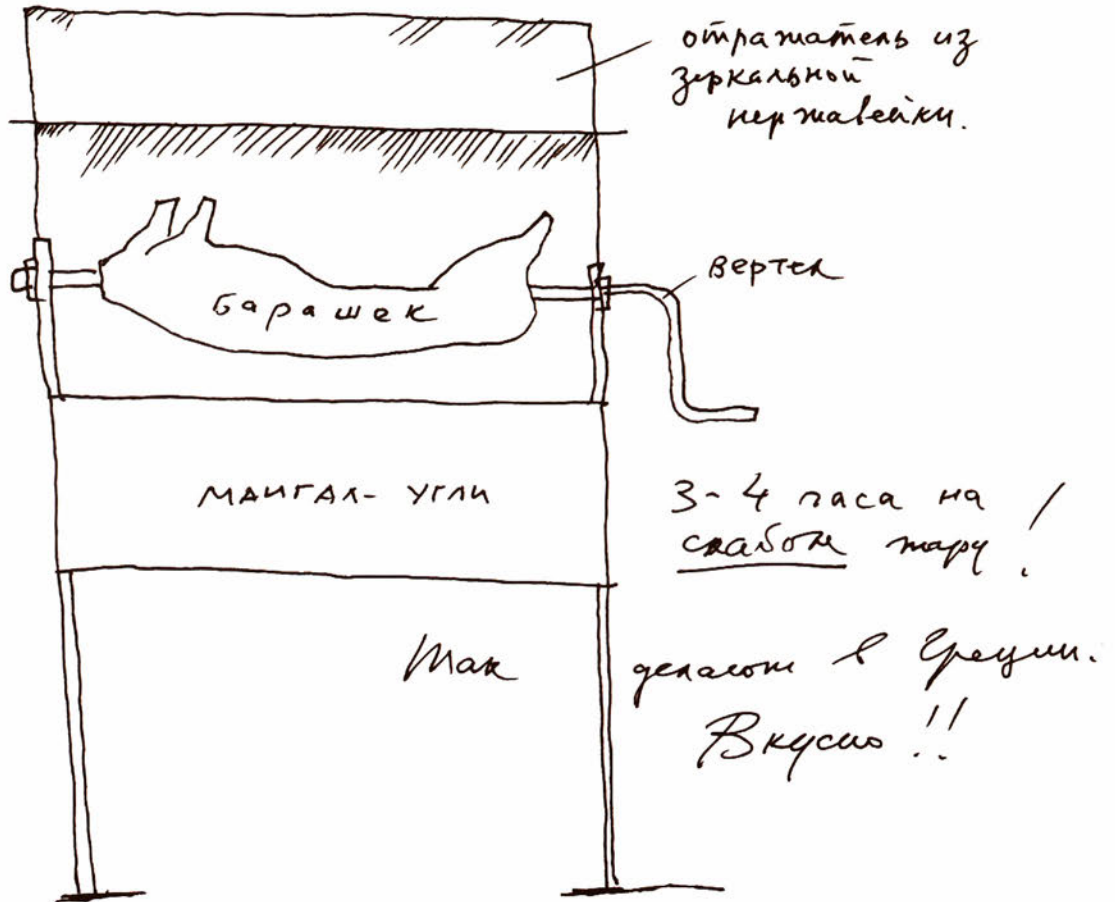 отражатель из
зеркальной
нержавейки.
вертел
барашек
МАНГАЛ - УГЛИ
3-4 часа на
слабом жару!
Так делают в Греции.
Вкусно!!